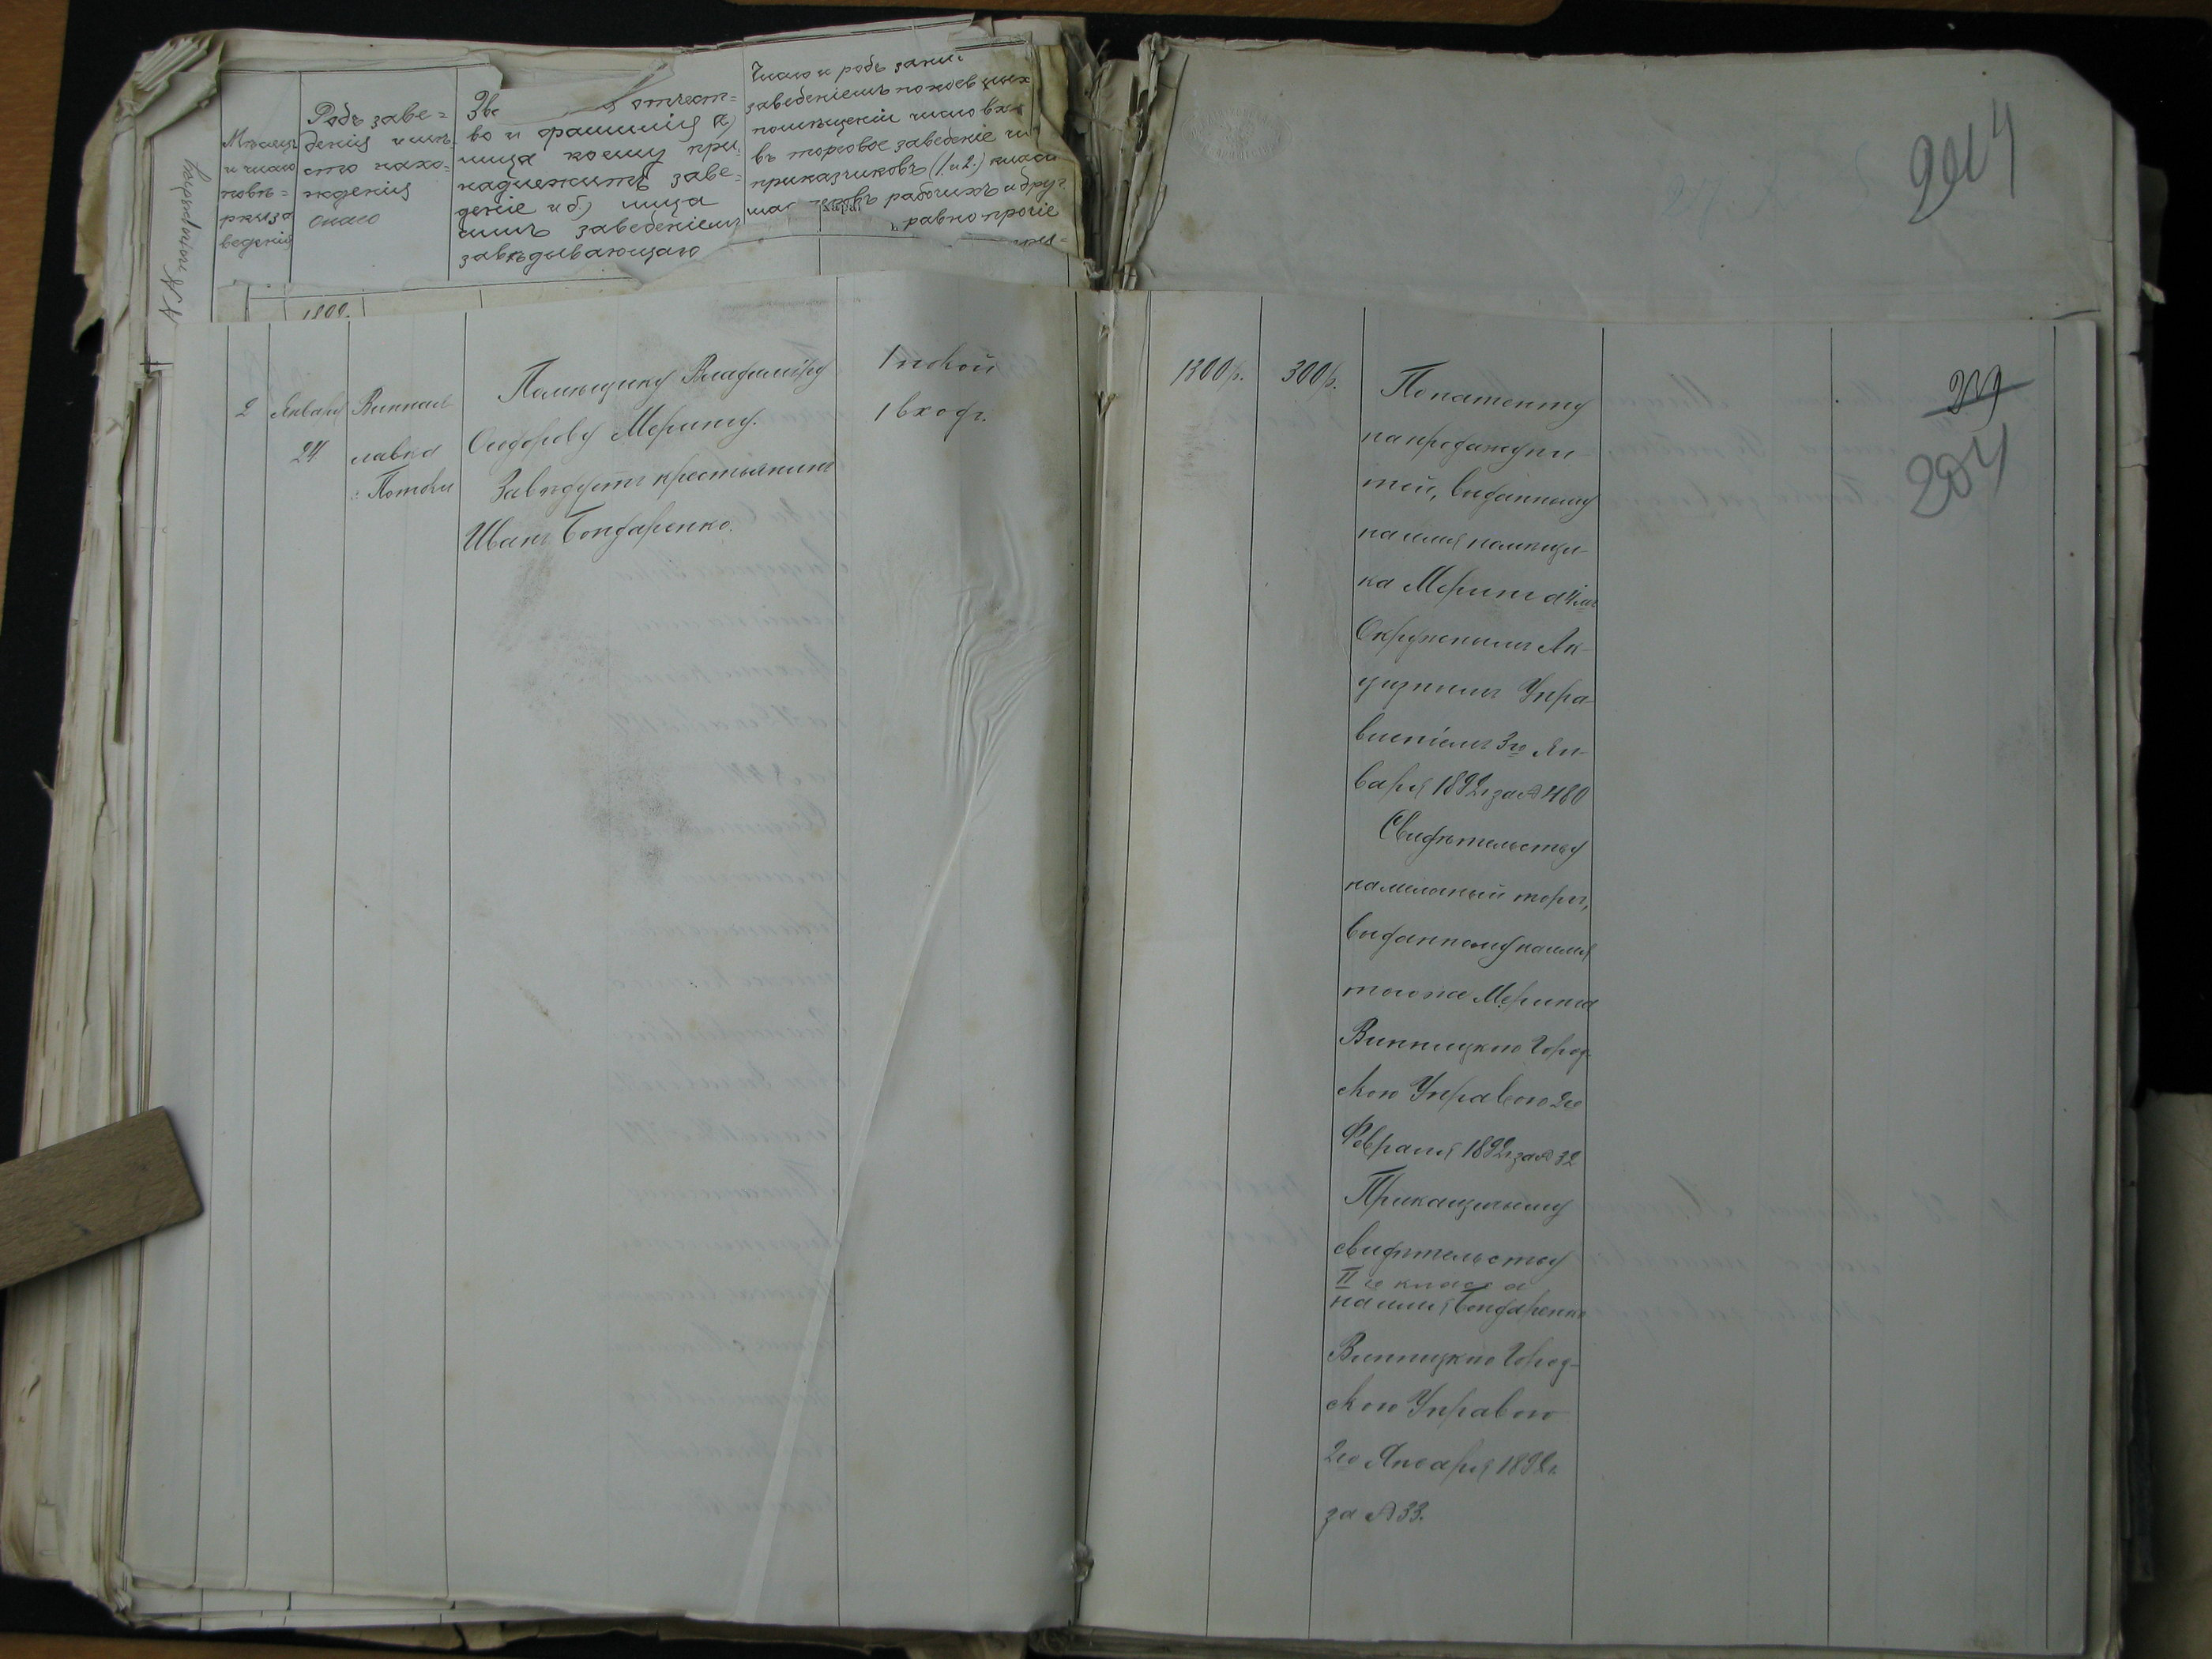 Порядочный №
Мѣсяцъ
и число
повѣ=
рки за
веденія
Родъ заве=
денія и мѣ
сто нахо=
жденія
онаго
Зва
отчест=
во и фамилія а)
лица коему при
надлежитъ заве=
деніе и б) лица
симъ заведеніемъ
завѣдывающаго
Число и родъ зани
заведеніемъ покоевъ
помѣщеній число вхо
въ торговое заведеніе
приказчиковъ (1 и 2) класс
рабочихъ и друг
равно прочіе
204
2
Января
24
Винная
лавка
с. Потоки
Помѣщику Владиміру
Сидорову Мерингу.
Завѣдуетъ крестьянинъ
Иванъ Бондаренко.
1 покой
1 входъ.
1300 р.
300 р.
По патенту
на продажу пи
тей, выданному
на имя помѣщи-
ка Меринга 4мъ
Окружнымъ Ак-
цизнымъ Упра-
вленіемъ 3го Ян-
варя 1892 г за № 480
Свидѣтельству
на мелочный торгъ,
выданному на имя
того же Меринга
Винницкою Город-
скою Управою 2го
Февраля 1892 г за № 32
Приказчичьему
свидѣтельству
II го класса
на имя Бондаренко
Винницкою Город-
скою Управою
2го Января 1892 г.
за № 33.
204